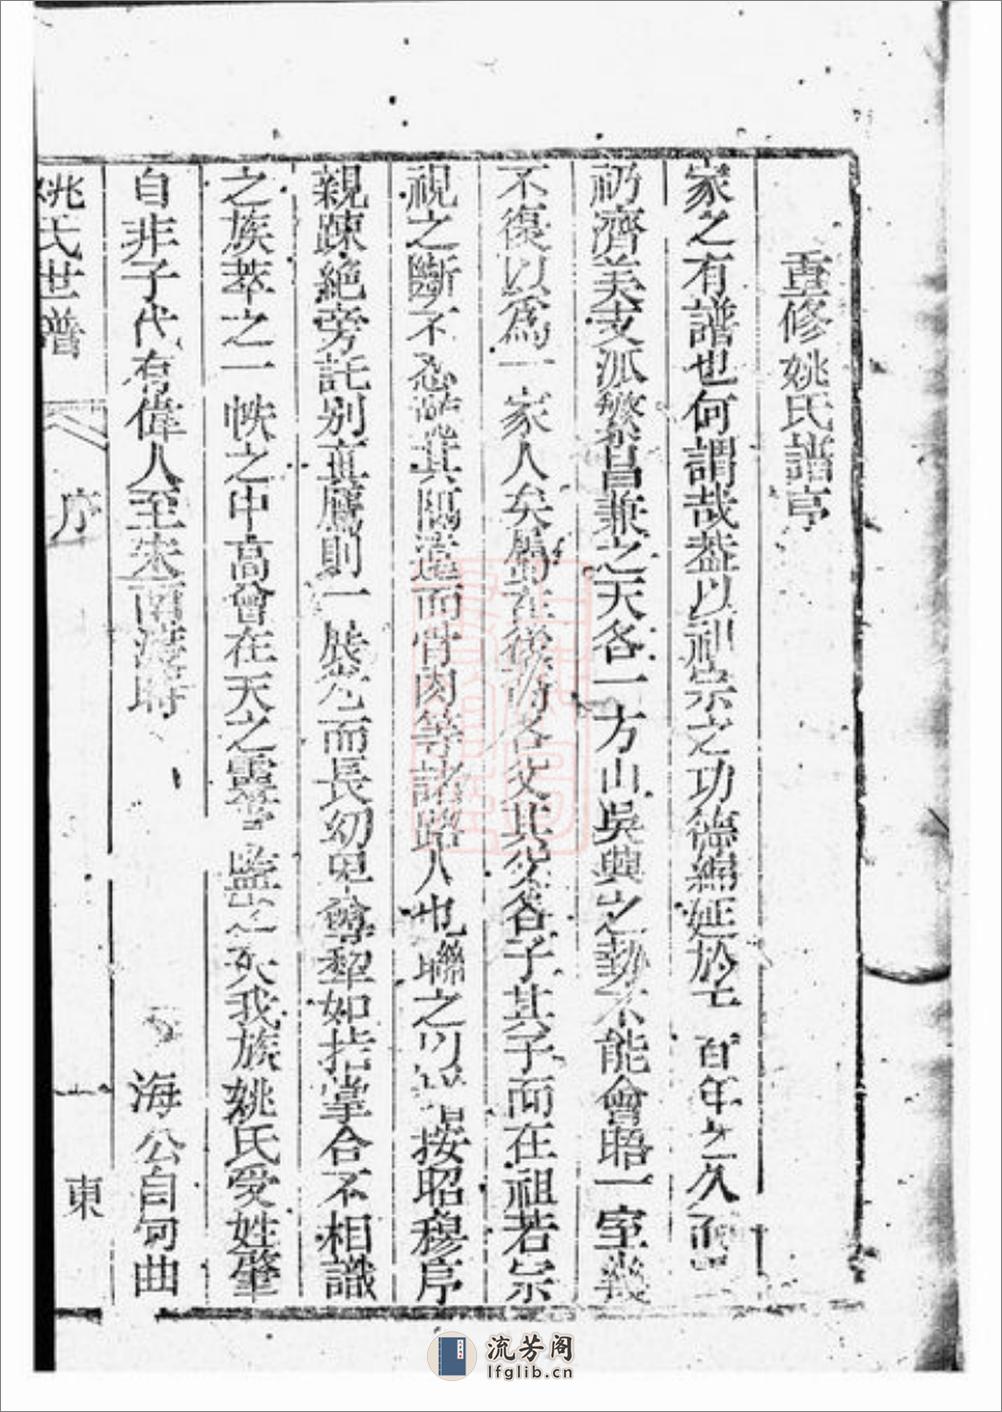 重修姚氏譜序
家之有譜也何謂哉葢以祖宗之功德綿延於百年之久
礽濟美支派繁昌兼之天各一方山吳與之勢不能會晤一室幾
不復以爲一家人矣各父其父各子其子而在祖若宗
視之斷不忍其隔遠而骨肉等諸路人也聯之以譜按昭穆序
親踈絕旁託别真贋則一展卷而長幼卑尊犂如指掌合不相識
之族萃之一帙之中高曾在天之靈監之矣我族姚氏受姓肇
自非子代有偉人至宋南渡時海公自句曲
姚氏世譜
序
一
東
流芳阁
lfglib.cn